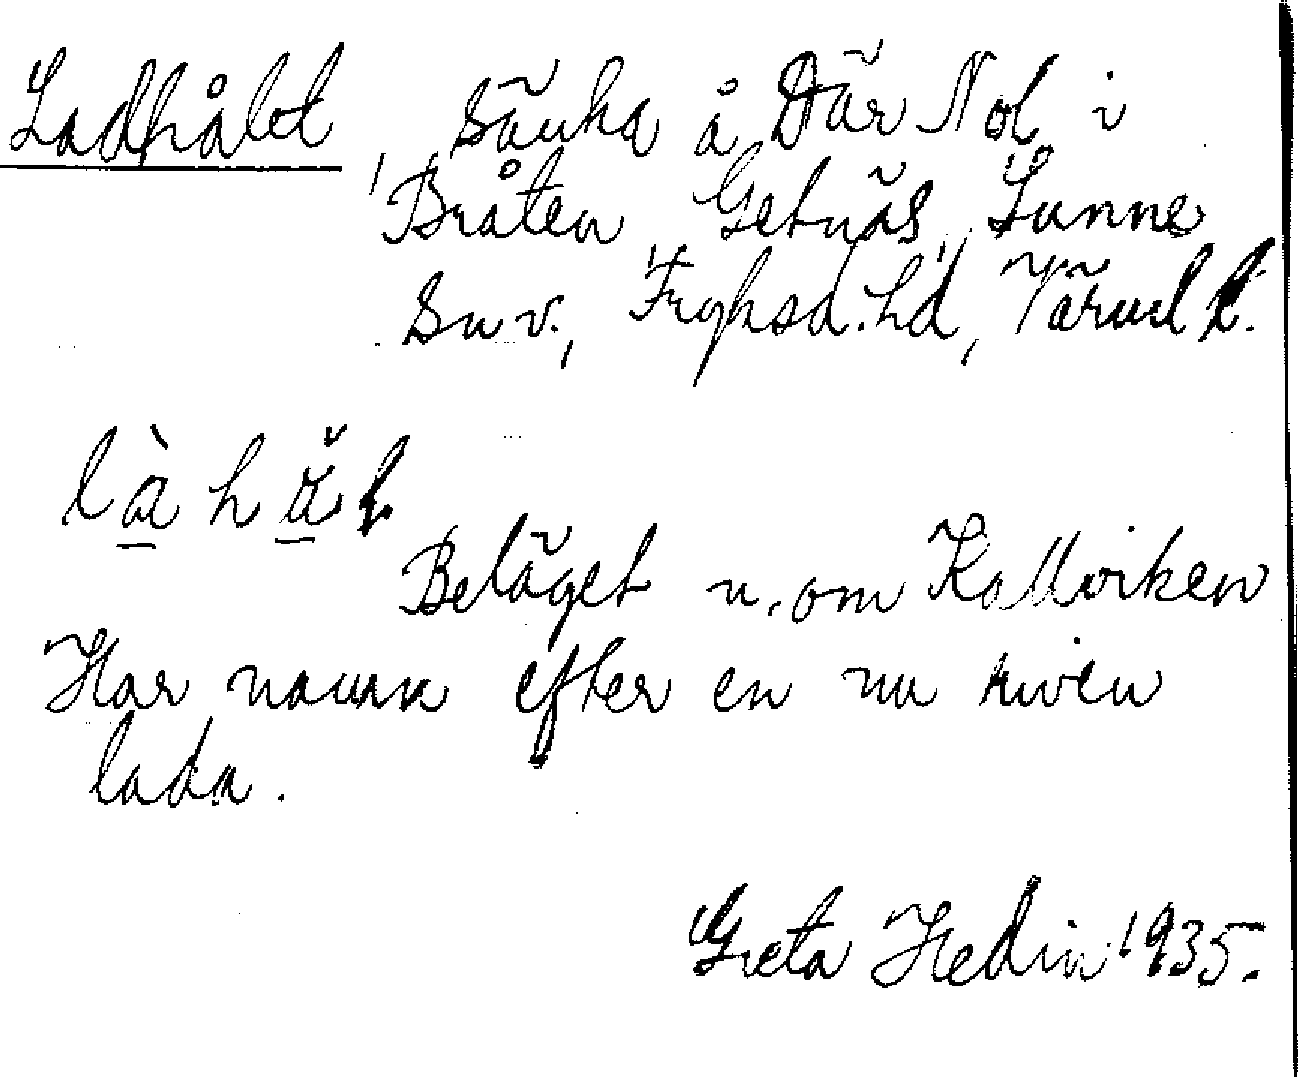 Ladhålt, sänka å Där Nol i
Bråten, Getnäs, Sunne
sn v., Fryksd. hd, Värml l.
là hå̌l
Beläget n. om Kallviken
Har namn efter en nu riven
lada.
Greta Hedin 1935.